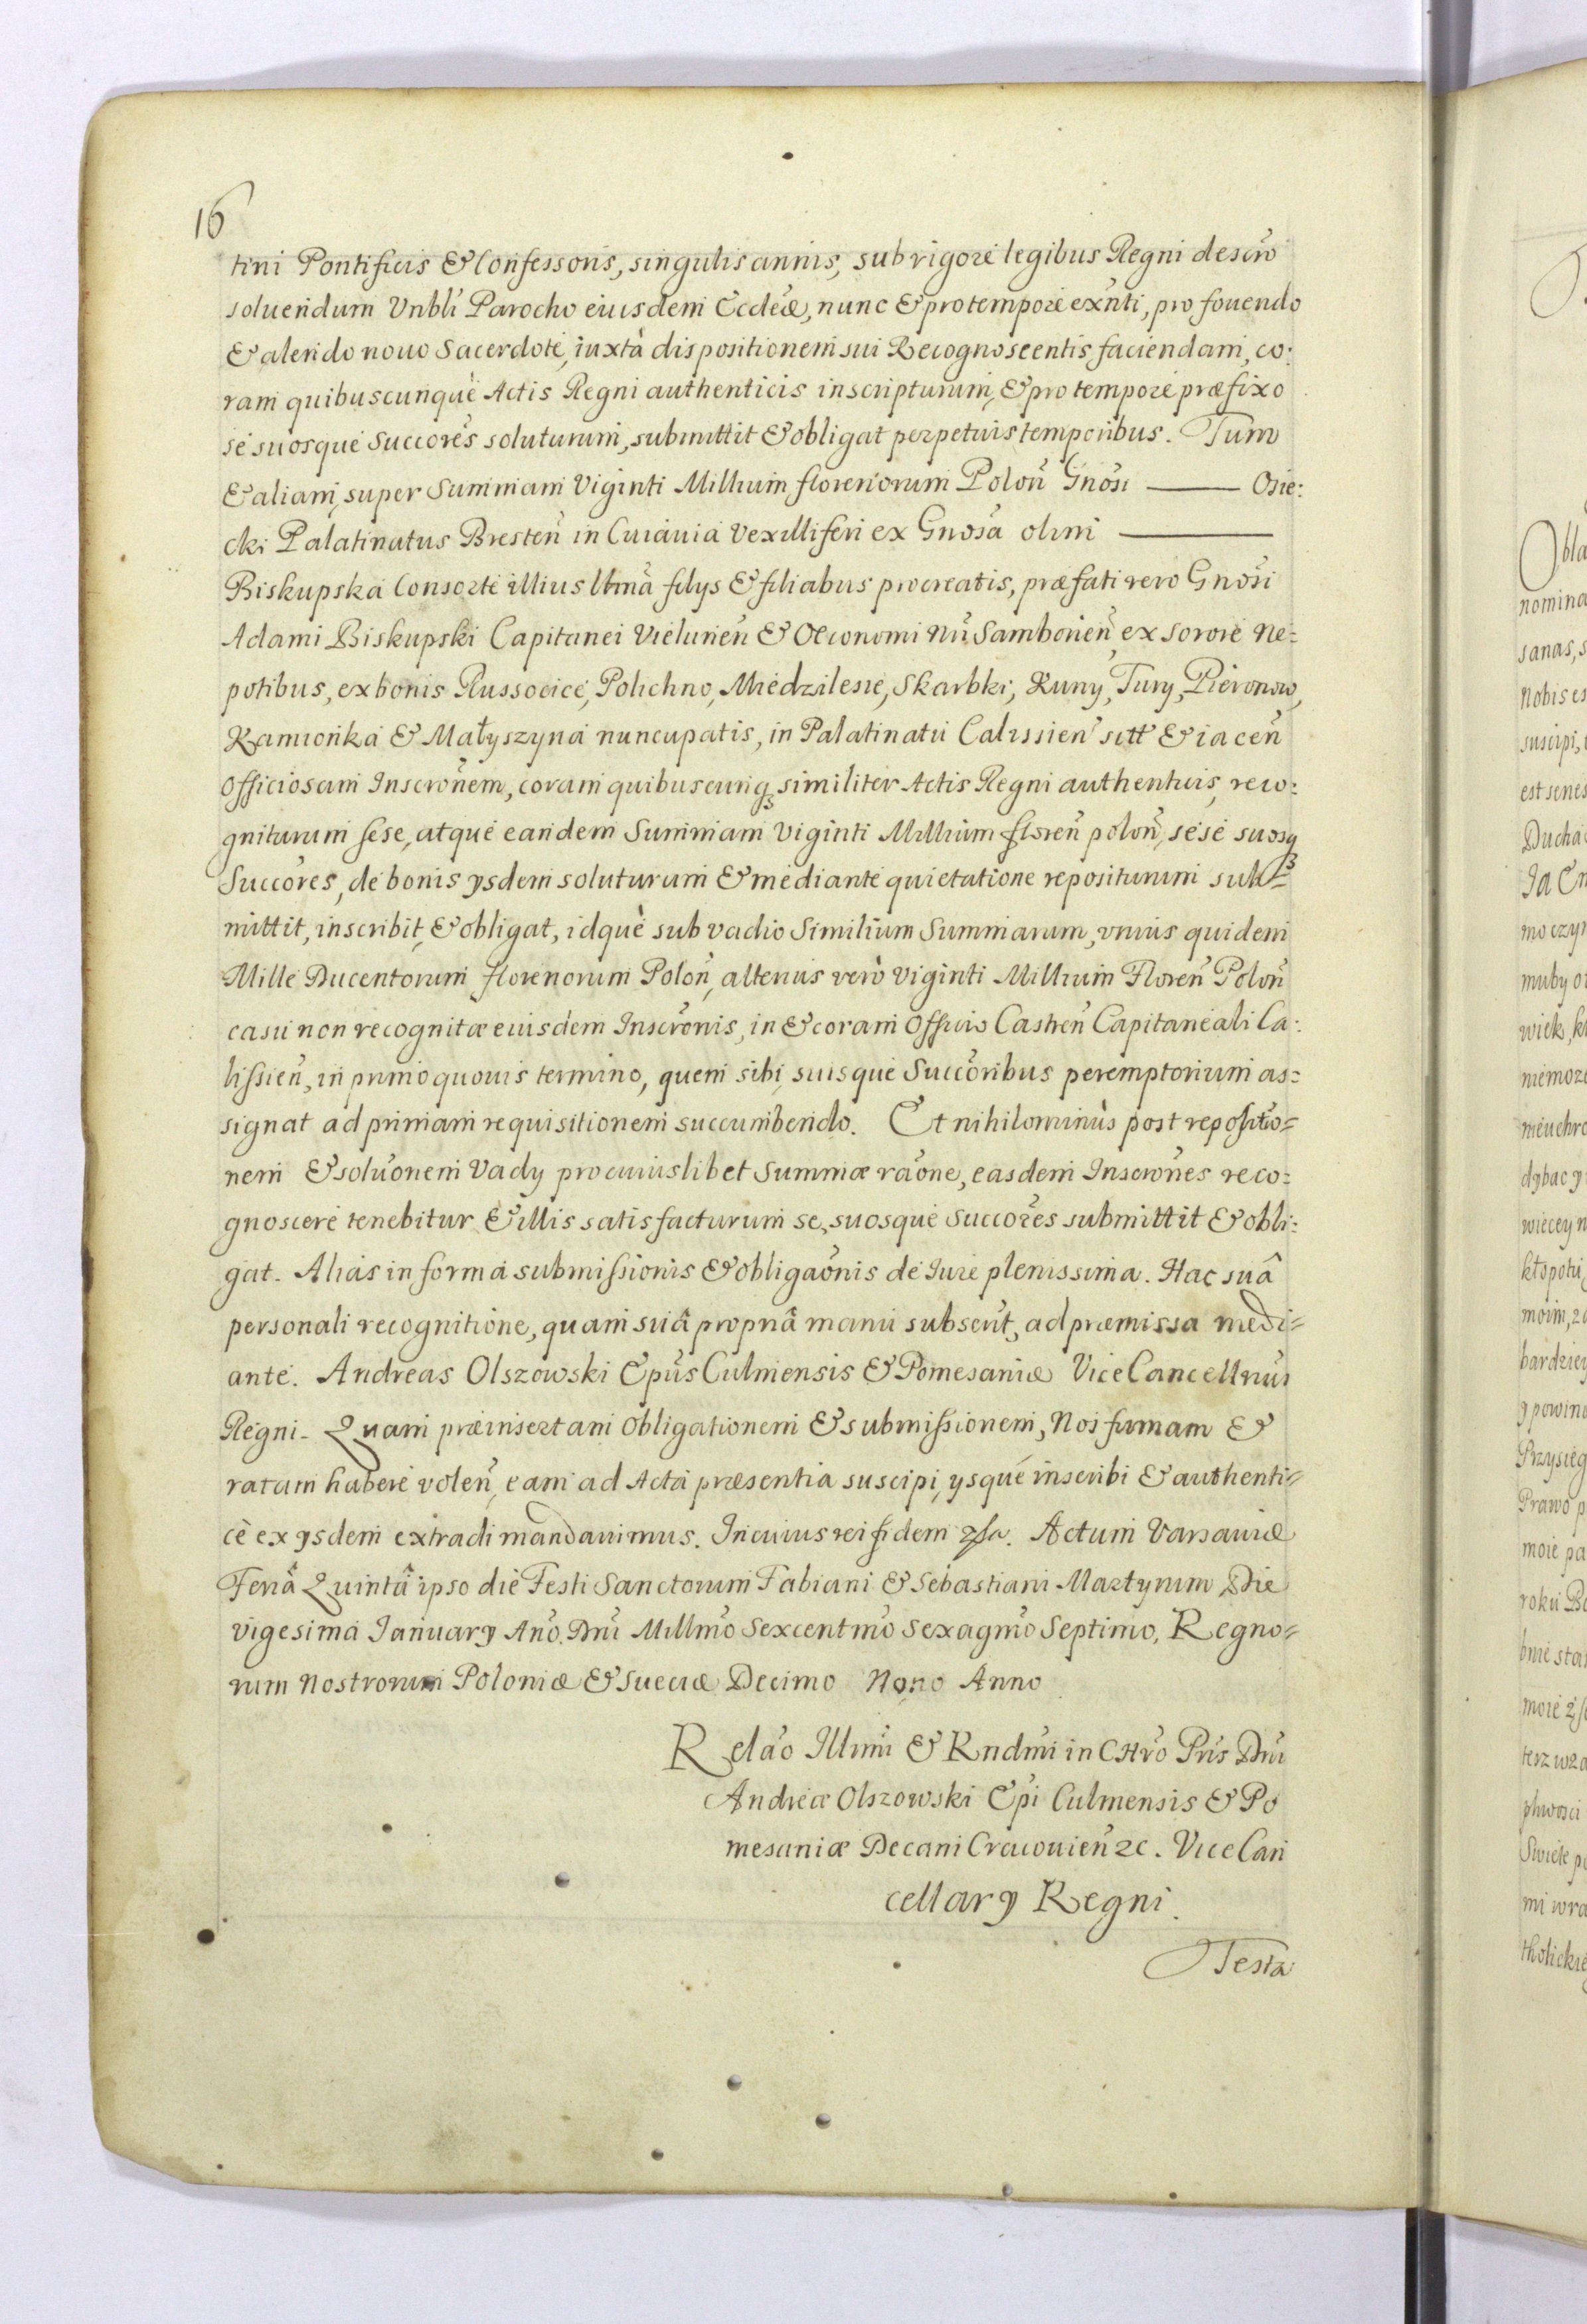 16
tini Pontificis & Confessoris, singulis annis, sub rigore legibus Regni descro
soluendum Vnbli Parocho eiusdem Eccleæ, nunc & pro tempore exnti, pro fouendo
& alendo nouo Sacerdote, iuxtà dispositionem sui Recognoscentis faciendam, co:
ram quibuscunquè Actis Regni authenticis inscripturum, & pro tempore præfixo
se suosque Succores soluturum, submittit & obligat perpetuis temporibus. Tum
& aliam, super Summam Viginti Millium florenorum Polon Gnosi ——— Osie:
cki Palatinatus Bresten in Cuiauia Vexilliferi ex Gnosa olim ———
Biskupska Consorte illius ltma filys & filiabus procreatis, præfati vero Gnosi
Adami Biskupski Capitanei Vielunen & Oeconomi Nri Samborien, ex sorore Ne=
potibus, ex bonis Russocice, Polichno, Miedzilesie, Skarbki, Kuny, Tury, Pieronow,
Kamionka & Małyszyna nuncupatis, in Palatinatu Calissien sitt & iacen
Officiosam Inscronem, coram quibuscunq similiter Actis Regni authenticis, reco:
gniturum sese, atque eandem Summam Viginti Millium floren polon, sese suosq
Succores, de bonis ysdem soluturum & mediante quietatione repositurum sub=
mittit, inscribit, & obligat, idquè sub vadio Similium Summarum, vnius quidem
Mille Ducentorum florenorum Polon, alterius verò Viginti Millium Floren Polon
casu non recognitæ eiusdem Inscronis, in & coram Officio Castren Capitaneali Ca:
lissien, in primo quouis termino, quem sibi, suisque Succoribus peremptorium as=
signat ad primam requisitionem succumbendo. Et nihilominùs post repositio=
nem & soluonem Vady pro cuiuslibet Summæ raone, easdem Inscrones reco=
gnoscere tenebitur & illis satisfacturum se, suosque Succores submittit & obli=
gat. Alias in forma submissionis & obligaonis de Iure plenissima. Hac suâ
personali recognitione, quam suâ propriâ manu subscrit, ad præmissa medi=
ante. Andreas Olszowski Epus Culmensis & Pomesaniæ Vice Cancellrius
Regni. Quam præinsertam Obligationem & submissionem, Nos firmam &
ratam habere volen, eam ad Acta præsentia suscipi, ysque inscribi & authenti=
cè ex ysdem extradi mandauimus. In cuius rei fidem &c. Actum Varsauiæ
Feriâ Quintâ ipso die Festi Sanctorum Fabiani & Sebastiani Martyrum Die
vigesima January Año. Dni Millmo Sexcentmo Sexagmo Septimo, Regno=
rum Nostrorum Poloniæ & Sueciæ Decimo Nono Anno
Relao Illmi & Rndmi in CHro Pris Dni
Andreæ Olszowski Epi Culmensis & Po
mesaniæ Decani Cracouien 2c. Vice Can
cellary Regni.
Testa